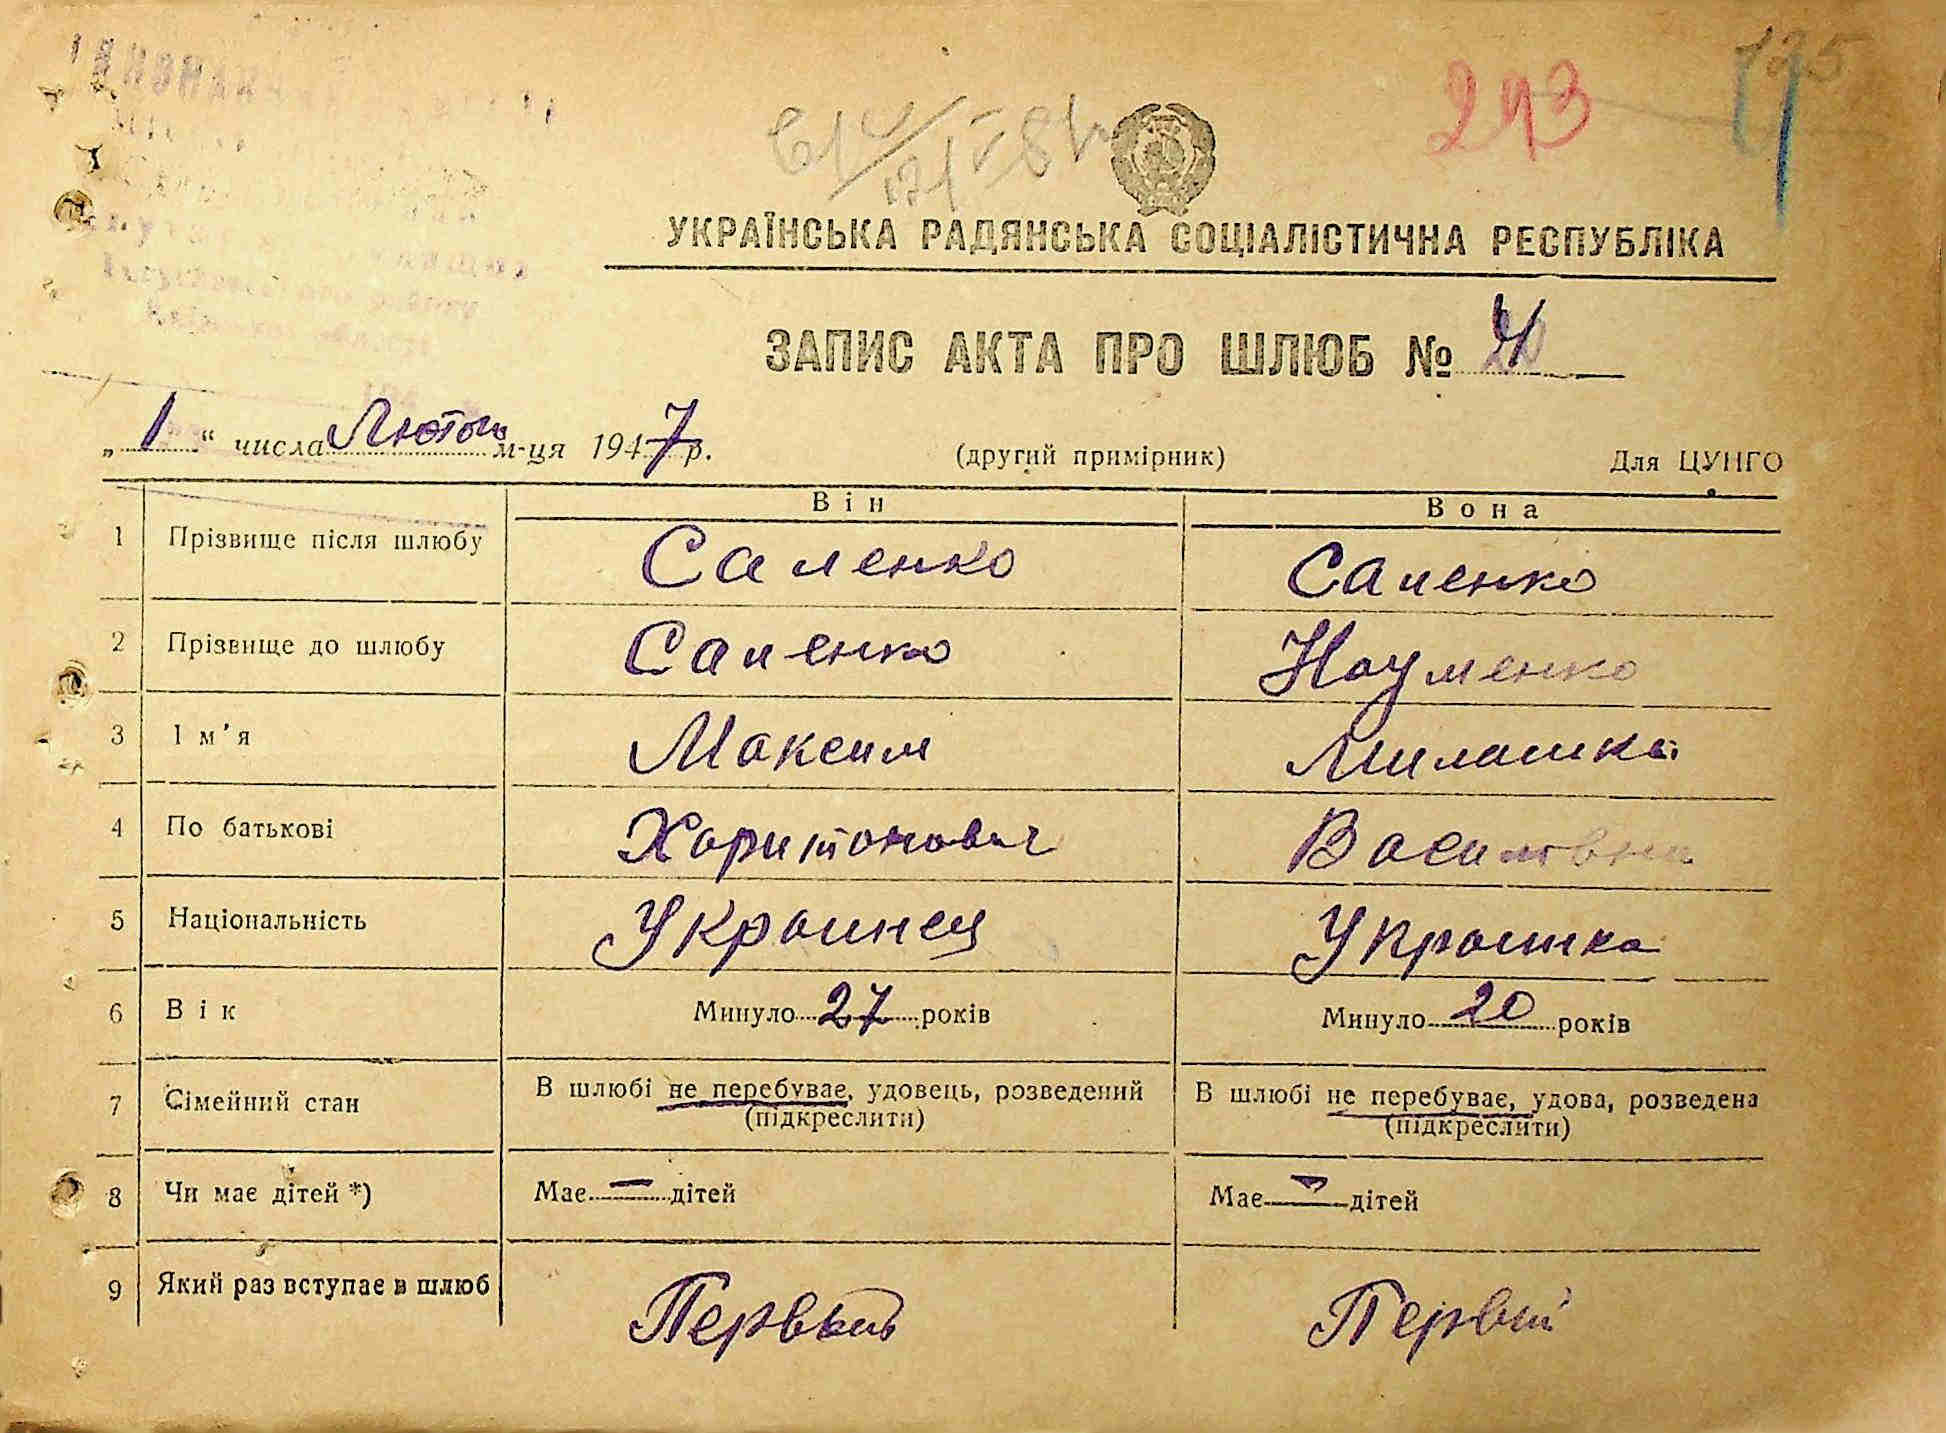 243
УКРАЇНСЬКА РАДЯНСЬКА СОЦІАЛІСТИЧНА РЕСПУБЛІКА
ЗАПИС АКТА ПРО ШЛЮБ №
„ 1 “ числа Лютого м-ця 1947 р. (другий примірник) Для ЦУНГО
Він Вона
1 Прізвище після шлюбу Саленко Саленко
2 Прізвище до шлюбу Саленко Науменко
3 Ім'я Максим Милашка
4 По батькові Харитонович Василовна
5 Національність Украинец Украинка
6 Вік Минуло 27 років Минуло 20 років
7 Сімейний стан В шлюбі не перебуває, удовець, розведений В шлюбі не перебуває, удова, розведена
(підкреслити) (підкреслити)
8 Чи має дітей *) Має — дітей Має — дітей
9 Який раз вступає в шлюб Первый Первий